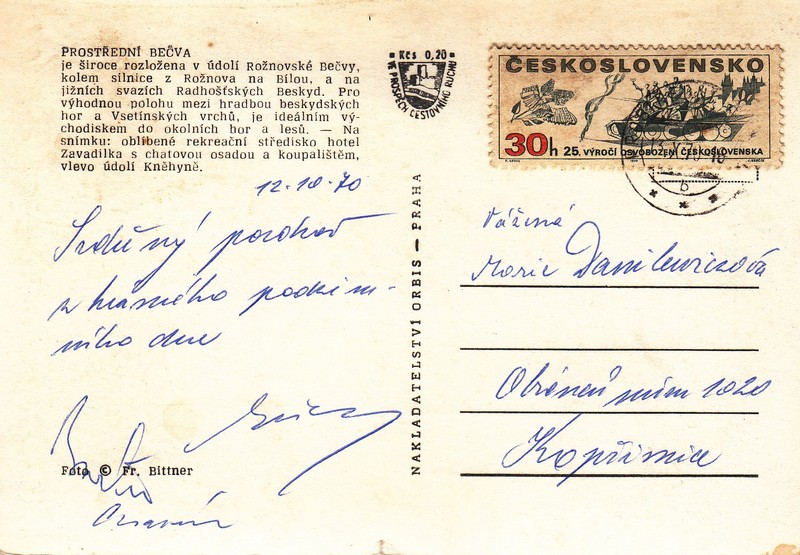 PROSTŘEDNÍ BEČVA
je široce rozložena v údolí Rožnovské Bečvy,
kolem silnice z Rožnova na Bílou, a na
jižních svazích Radhošťských Beskyd. Pro
výhodnou polohu mezi hradbou beskydských
hor a Vsetínských vrchů, je ideálním vý-
chodiskem do okolních hor a lesů. — Na
snímku: oblíbené rekreační středisko hotel
Zavadilka s chatovou osadou a koupalištěm,
vlevo údolí Kněhyně.
Kčs 0,20
VE PROSPĚCH CESTOVNÍHO RUCHU
ČESKOSLOVENSKO
30h 25. VÝROČÍ OSVOBOZENÍ ČESKOSLOVENSKA
12.10.70
Srdečný pozdrav
z krásného podzim-
ního dne
Foto © Fr. Bittner
NAKLADATELSTVÍ ORBIS — PRAHA
Vážená
Marie Danilewiczová
Obránců míru 1020
Kopřivnice